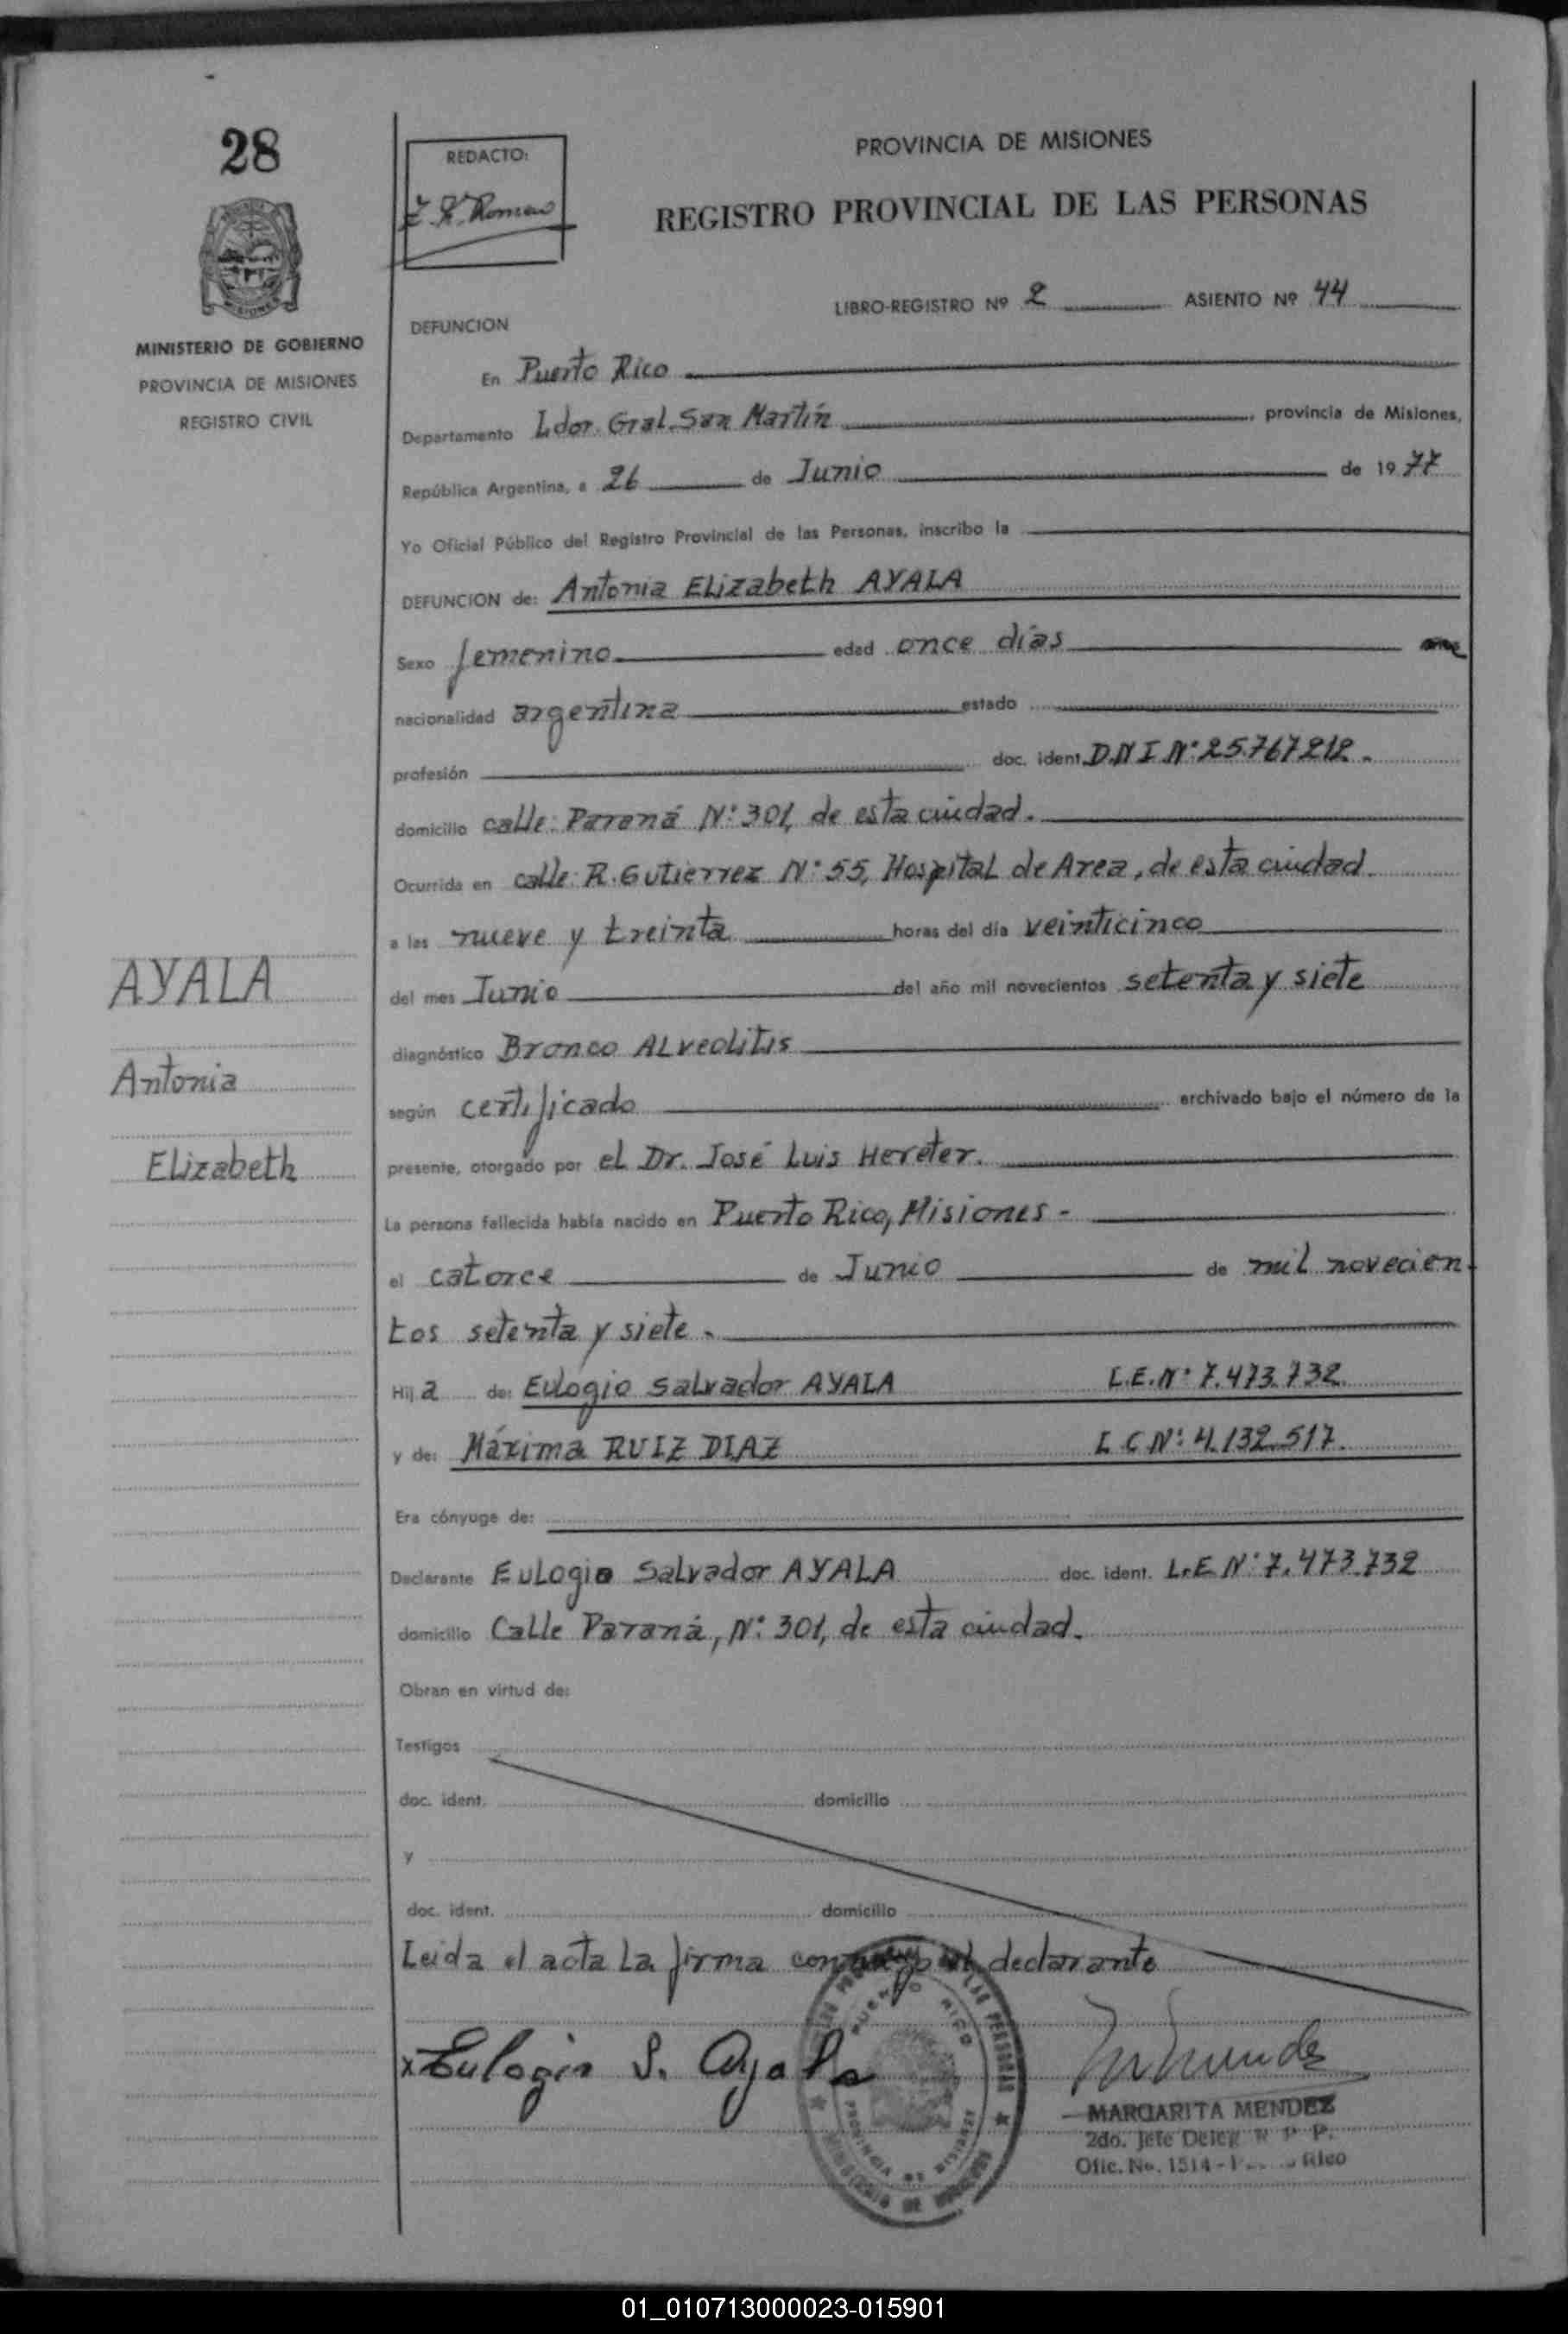 28
REDACTO:
PROVINCIA DE MISIONES
REGISTRO PROVINCIAL DE LAS PERSONAS
MINISTERIO DE GOBIERNO
PROVINCIA DE MISIONES
REGISTRO CIVIL
LIBRO-REGISTRO Nº 2 ASIENTO Nº 44
DEFUNCION
En Puerto Rico
Departamento Ldor. Gral. San Martín, provincia de Misiones,
República Argentina, a 26 de Junio de 1977
Yo Oficial Público del Registro Provincial de las Personas, inscribo la
DEFUNCION de: Antonia Elizabeth AYALA
Sexo femenino edad once días
nacionalidad argentina estado
profesión doc. ident. D.N I N: 25.767.212.
domicilio calle: Paraná N: 301, de esta ciudad.
Ocurrida en calle: R. Gutierrez N: 55, Hospital de Area, de esta ciudad.
a las nueve y treinta horas del día veinticinco
del mes Junio del año mil novecientos setenta y siete
diagnóstico Bronco Alveolitis
según certificado archivado bajo el número de la
presente, otorgado por el Dr. José Luis Hereter.
La persona fallecida había nacido en Puerto Rico, Misiones -
el catorce de Junio de mil novecien
tos setenta y siete.
Hija de: Eulogio Salvador AYALA L.E. Nº 7.473.732.
y de: Máxima RUIZ DIAZ L C N: 4.132.517.
Era cónyuge de:
Declarante Eulogio Salvador AYALA doc. ident. L.E N: 7.473.732
domicilio Calle Paraná, N: 301, de esta ciudad.
Obran en virtud de:
Testigos
doc. ident. domicilio
y
doc. ident. domicilio
Leida el acta la firma conmigo el declarante
x Eulogio S. Ayala
MARGARITA MENDEZ
2do. Jefe Deleg. R P P.
Ofic. No. 1514 - Rico
PUERTO RICO
PROVINCIA DE MISIONES
AYALA
Antonia
Elizabeth
01_010713000023-015901